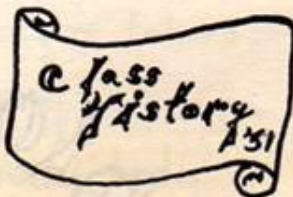 Class
History
'51